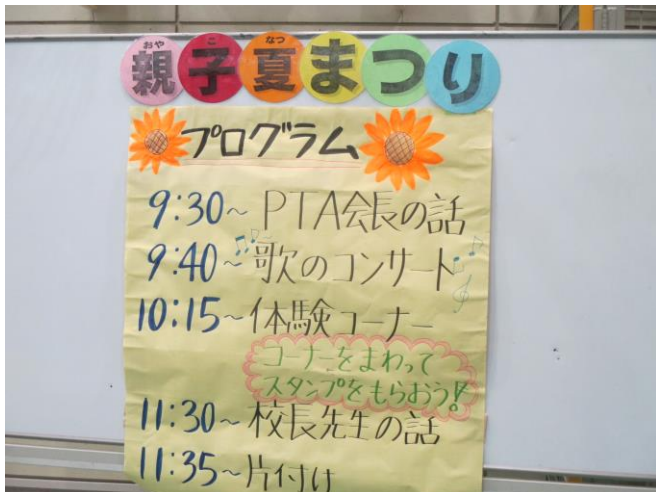 おや こ なつ
親子夏まつり
プログラム
9:30~ PTA会長の話
9:40~ 歌のコンサート
10:15~ 体験コーナー
コーナーをまわって
スタンプをもらおう!
11:30~ 校長先生の話
11:35~ 片付け